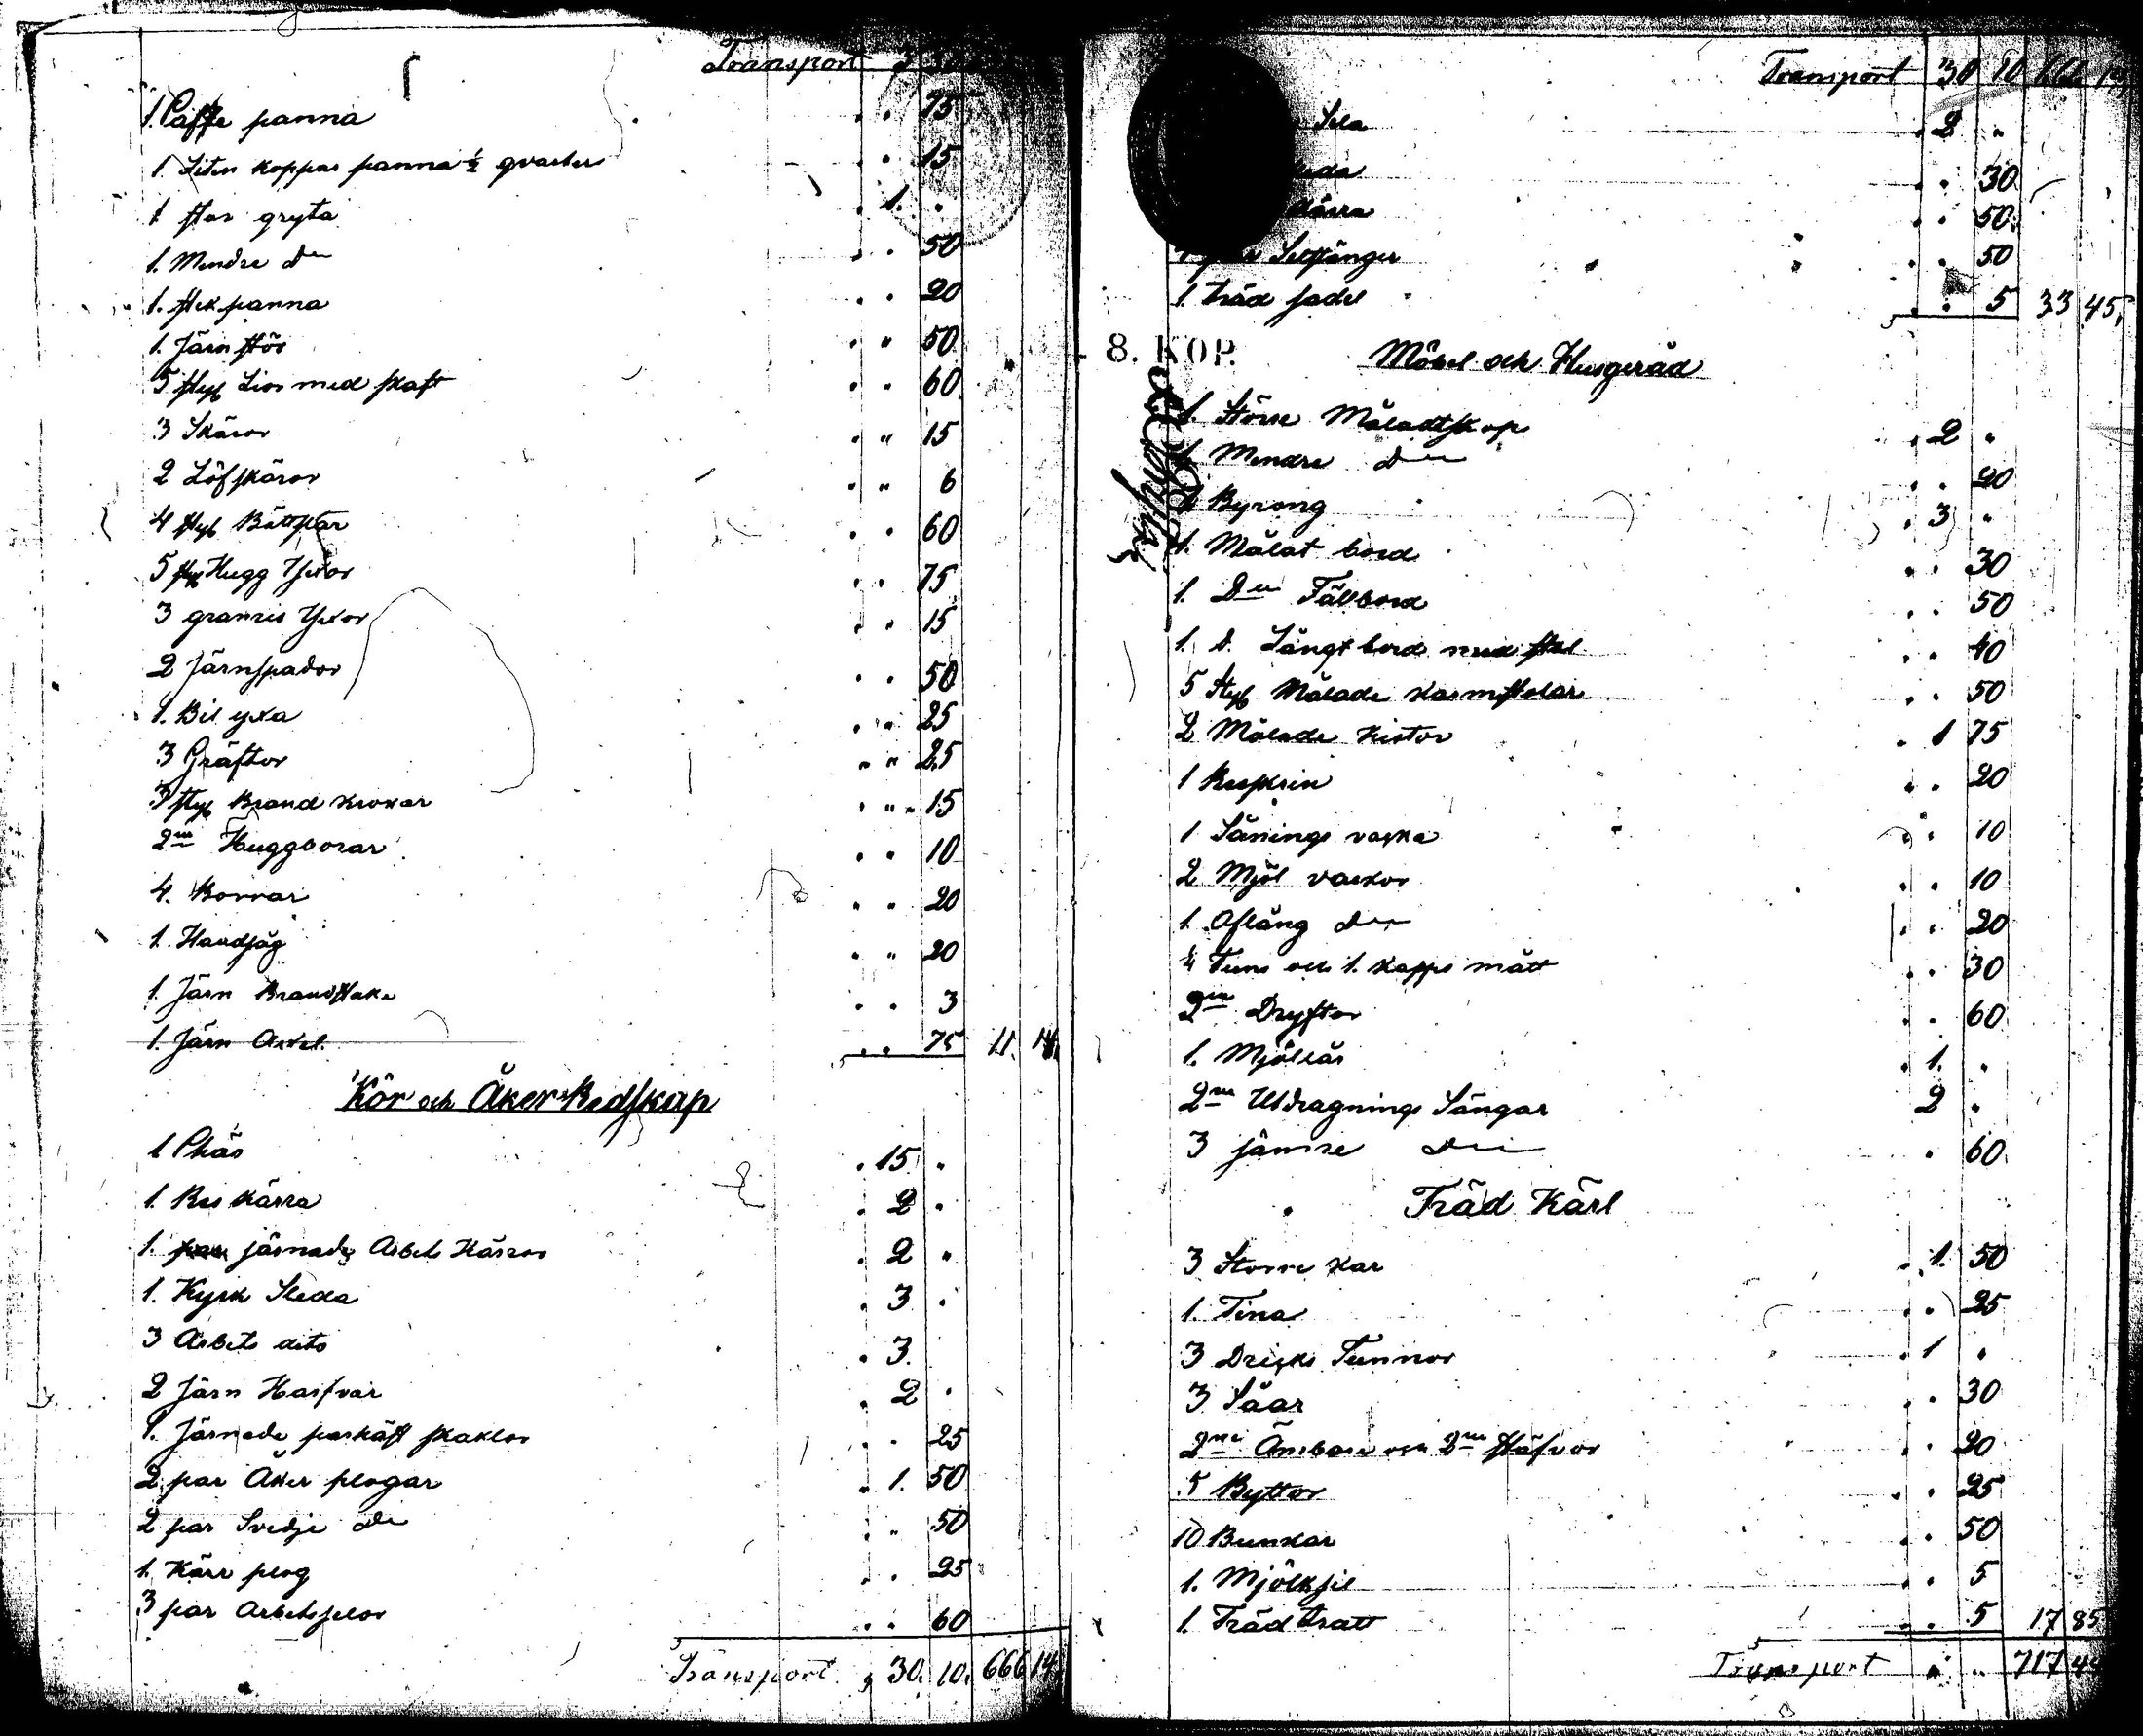 Transport 3
1. Caffe panna . . 75
1 Liten koppar panna ½ qvarter . . 15
1 stor gryta . 1. .
1. Mindre do . . 50
1. stekpanna . . 20
1. Järn stör . . 50
5 styk Liar med skaft . . 60
3 Skäror . . 15
2 Löfskäror . . 6
4 styk . . 60
5 styk Hugg Yxor . . 75
3 granris Yxor . . 15
2 Järnspador . . 50
1. Bil yxa . . 25
3 Gräftor . . 25
3 styk Brand krokar . . 15
2ne Huggborar . . 10
4. Borrar . . 20
1. Handsåg . . 20
1. Järn Brandstake . . 3
1. Järn Axel . . 75 11. 14.
Kör och Åker Redskap
1 Chäs . 15 .
1. Res kärra . 2 .
1. järnade Arbets Kärror . 2 .
1. Kyrk Sleda . 3 .
3 Arbets dito . 3.
2 Järn Harfvar . 2 .
1. Järnade parhäst skaklor . . 25
2 par Åker plogar . 1. 50
2 par Svedje do . . 50
1. Kärr plog . . 25
3 par Arbetsselar . . 60
Transport 30. 10. 666 14
Transport 30 10 666 14
Sela . 2 .
. . 30
Kärra . . 50
. . 50
1 träd sadel . . 5 33 45
8. KOP.
Möbel och Husgeråd
1. Större Måladt skåp . 2 .
1 Mindre do . . 20
1 Byrong . 3 .
1. Målat bord . . 30
1. Do Fällbord . . 50
1. d. Långt bord med stol . . 40
5 styk Målade karmstolar . . 50
2 Målade kistor . 1 75
1 Resskrin . . 20
1 Sånings vaska . . 10
2 Mjöl vaskor . . 10
1. Aflång do . . 20
4 Tuns och 1. kappe mått . . 30
2ne Dryftor . . 60
1. Mjöllår . 1. .
2ne Utdragnings Sängar 2 .
3 sämre do . 60
Träd Kärl
3 Större kar . 1. 50
1. Tina . . 25
3 Dricks Tunnor . 1 .
3 Såar . . 30
2ne Ämbare och 2ne stäfvor . . 20
5 Byttor . . 25
10 Bunkar . . 50
1. Mjölksil . . 5
1. Träd tratt . . 5 17 85
Transport 717 44